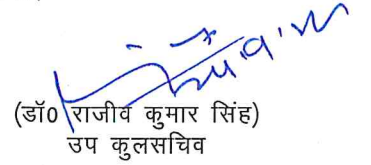 (डॉ० राजीव कुमार सिंह)
उप कुलसचिव